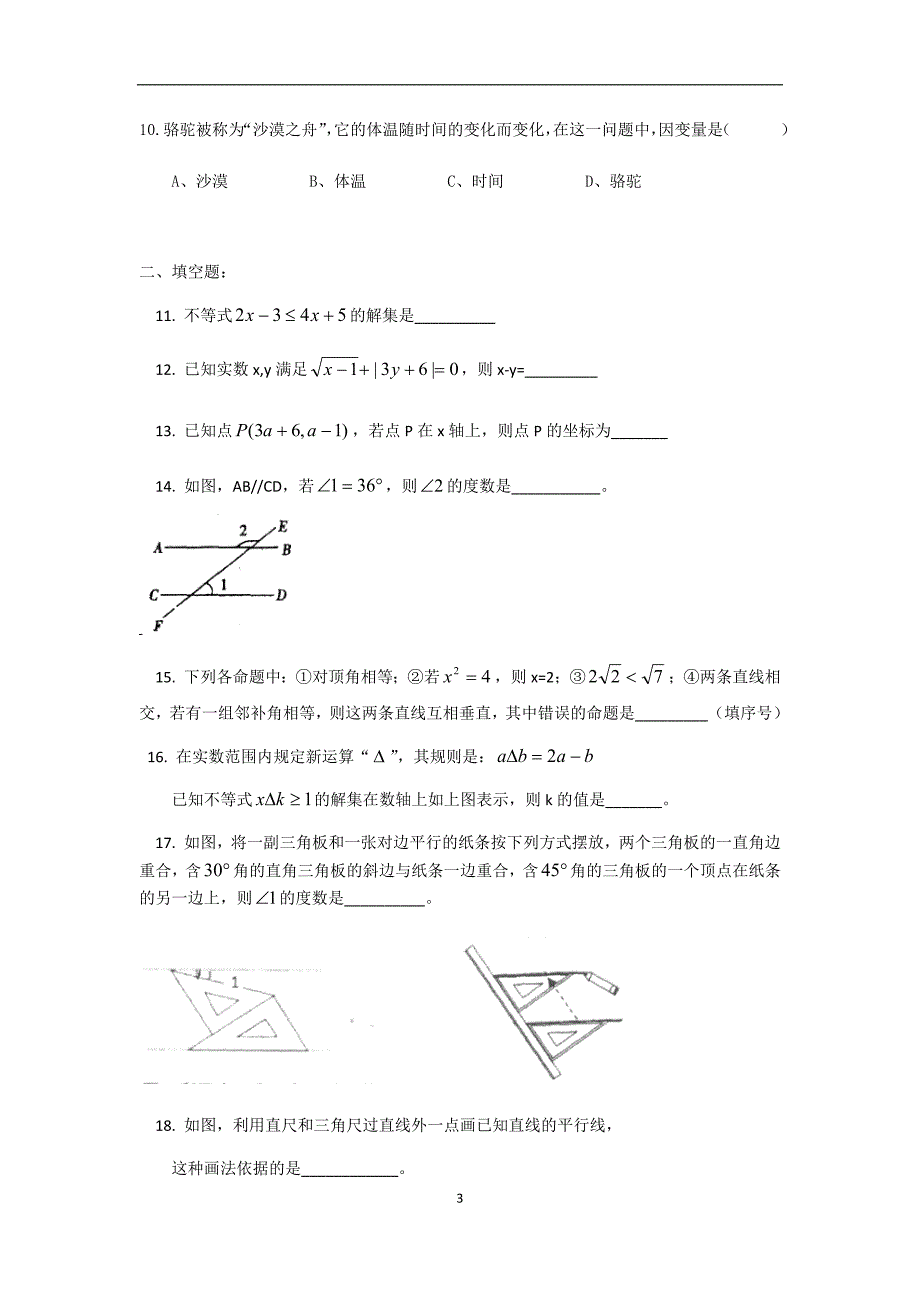 10.骆驼被称为“沙漠之舟”,它的体温随时间的变化而变化,在这一问题中,因变量是( )
A、沙漠 B、体温 C、时间 D、骆驼
二、填空题:
11. 不等式2x－3≤4x＋5的解集是__________
12. 已知实数x,y满足√(x－1)＋|3y＋6|=0，则x-y=_________
13. 已知点P(3a＋6,a－1)，若点P在x轴上，则点P的坐标为_______
14. 如图，AB//CD，若∠1=36°，则∠2的度数是___________。
E
2
A B
1
C D
F
15. 下列各命题中：①对顶角相等；②若x²=4，则x=2；③2√2<√7；④两条直线相
交，若有一组邻补角相等，则这两条直线互相垂直，其中错误的命题是_________（填序号）
16. 在实数范围内规定新运算“Δ”，其规则是：aΔb=2a－b
已知不等式xΔk≥1的解集在数轴上如上图表示，则k的值是_______。
17. 如图，将一副三角板和一张对边平行的纸条按下列方式摆放，两个三角板的一直角边
重合，含30°角的直角三角板的斜边与纸条一边重合，含45°角的三角板的一个顶点在纸条
的另一边上，则∠1的度数是__________。
1
18. 如图，利用直尺和三角尺过直线外一点画已知直线的平行线，
这种画法依据的是____________。
3